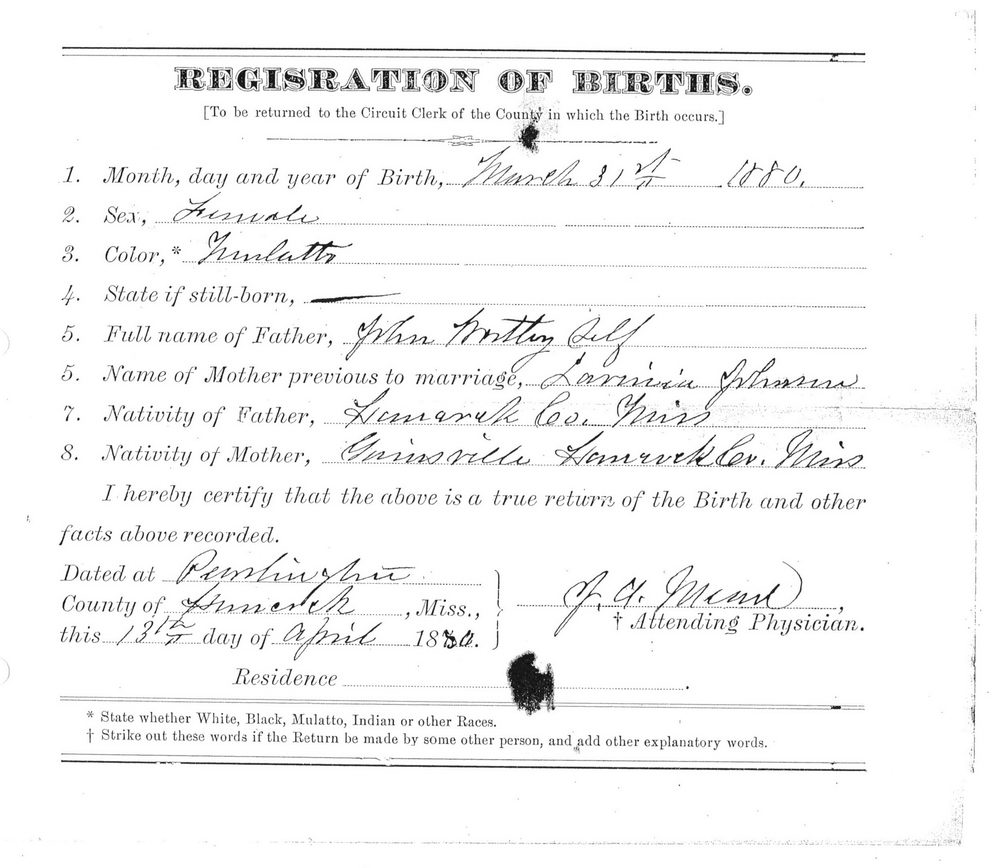 REGISRATION OF BIRTHS.
[To be returned to the Circuit Clerk of the County in which the Birth occurs.]
1. Month, day and year of Birth, March 31st 1880.
2. Sex, Female
3. Color,* Mulatto
4. State if still-born, —
5. Full name of Father, John Self
5. Name of Mother previous to marriage, Lavinia Johnson
7. Nativity of Father, Hancock Co. Miss
8. Nativity of Mother, Gainsville Hancock Co. Miss
I hereby certify that the above is a true return of the Birth and other
facts above recorded.
Dated at Pearlington
County of Hancock, Miss.,
this 13th day of April 1880.
J.
† Attending Physician.
Residence
* State whether White, Black, Mulatto, Indian or other Races.
† Strike out these words if the Return be made by some other person, and add other explanatory words.